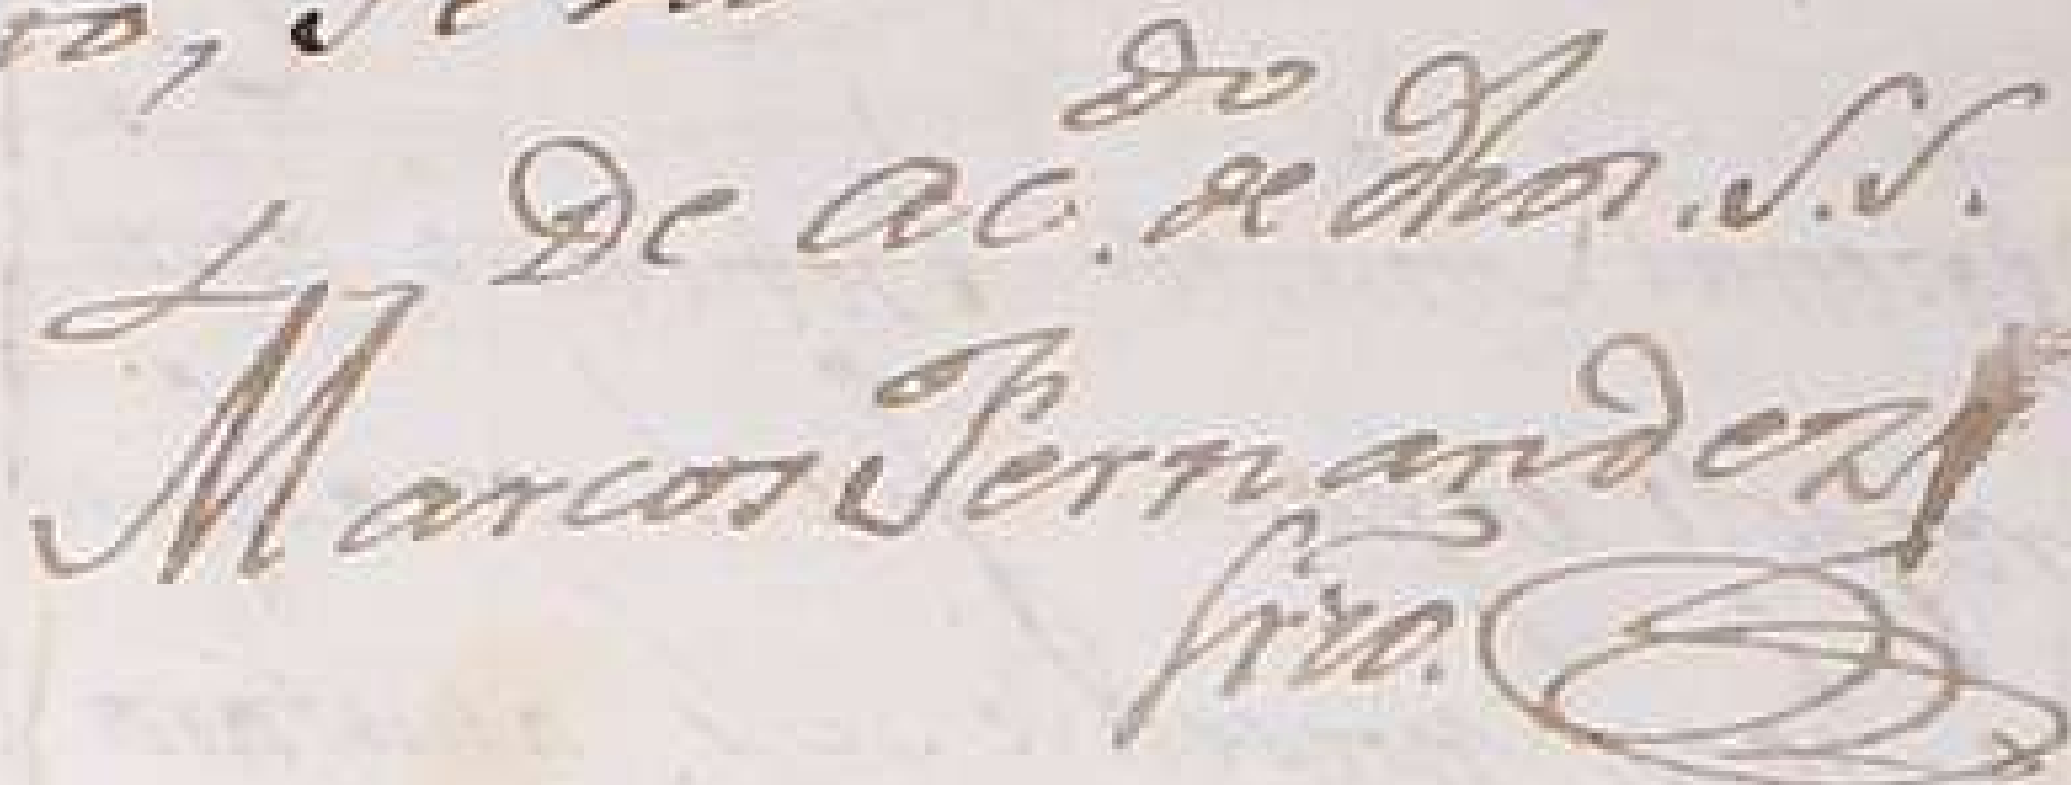 De ac.do de dhos. S.S.
Marcos Fernandez
srio.